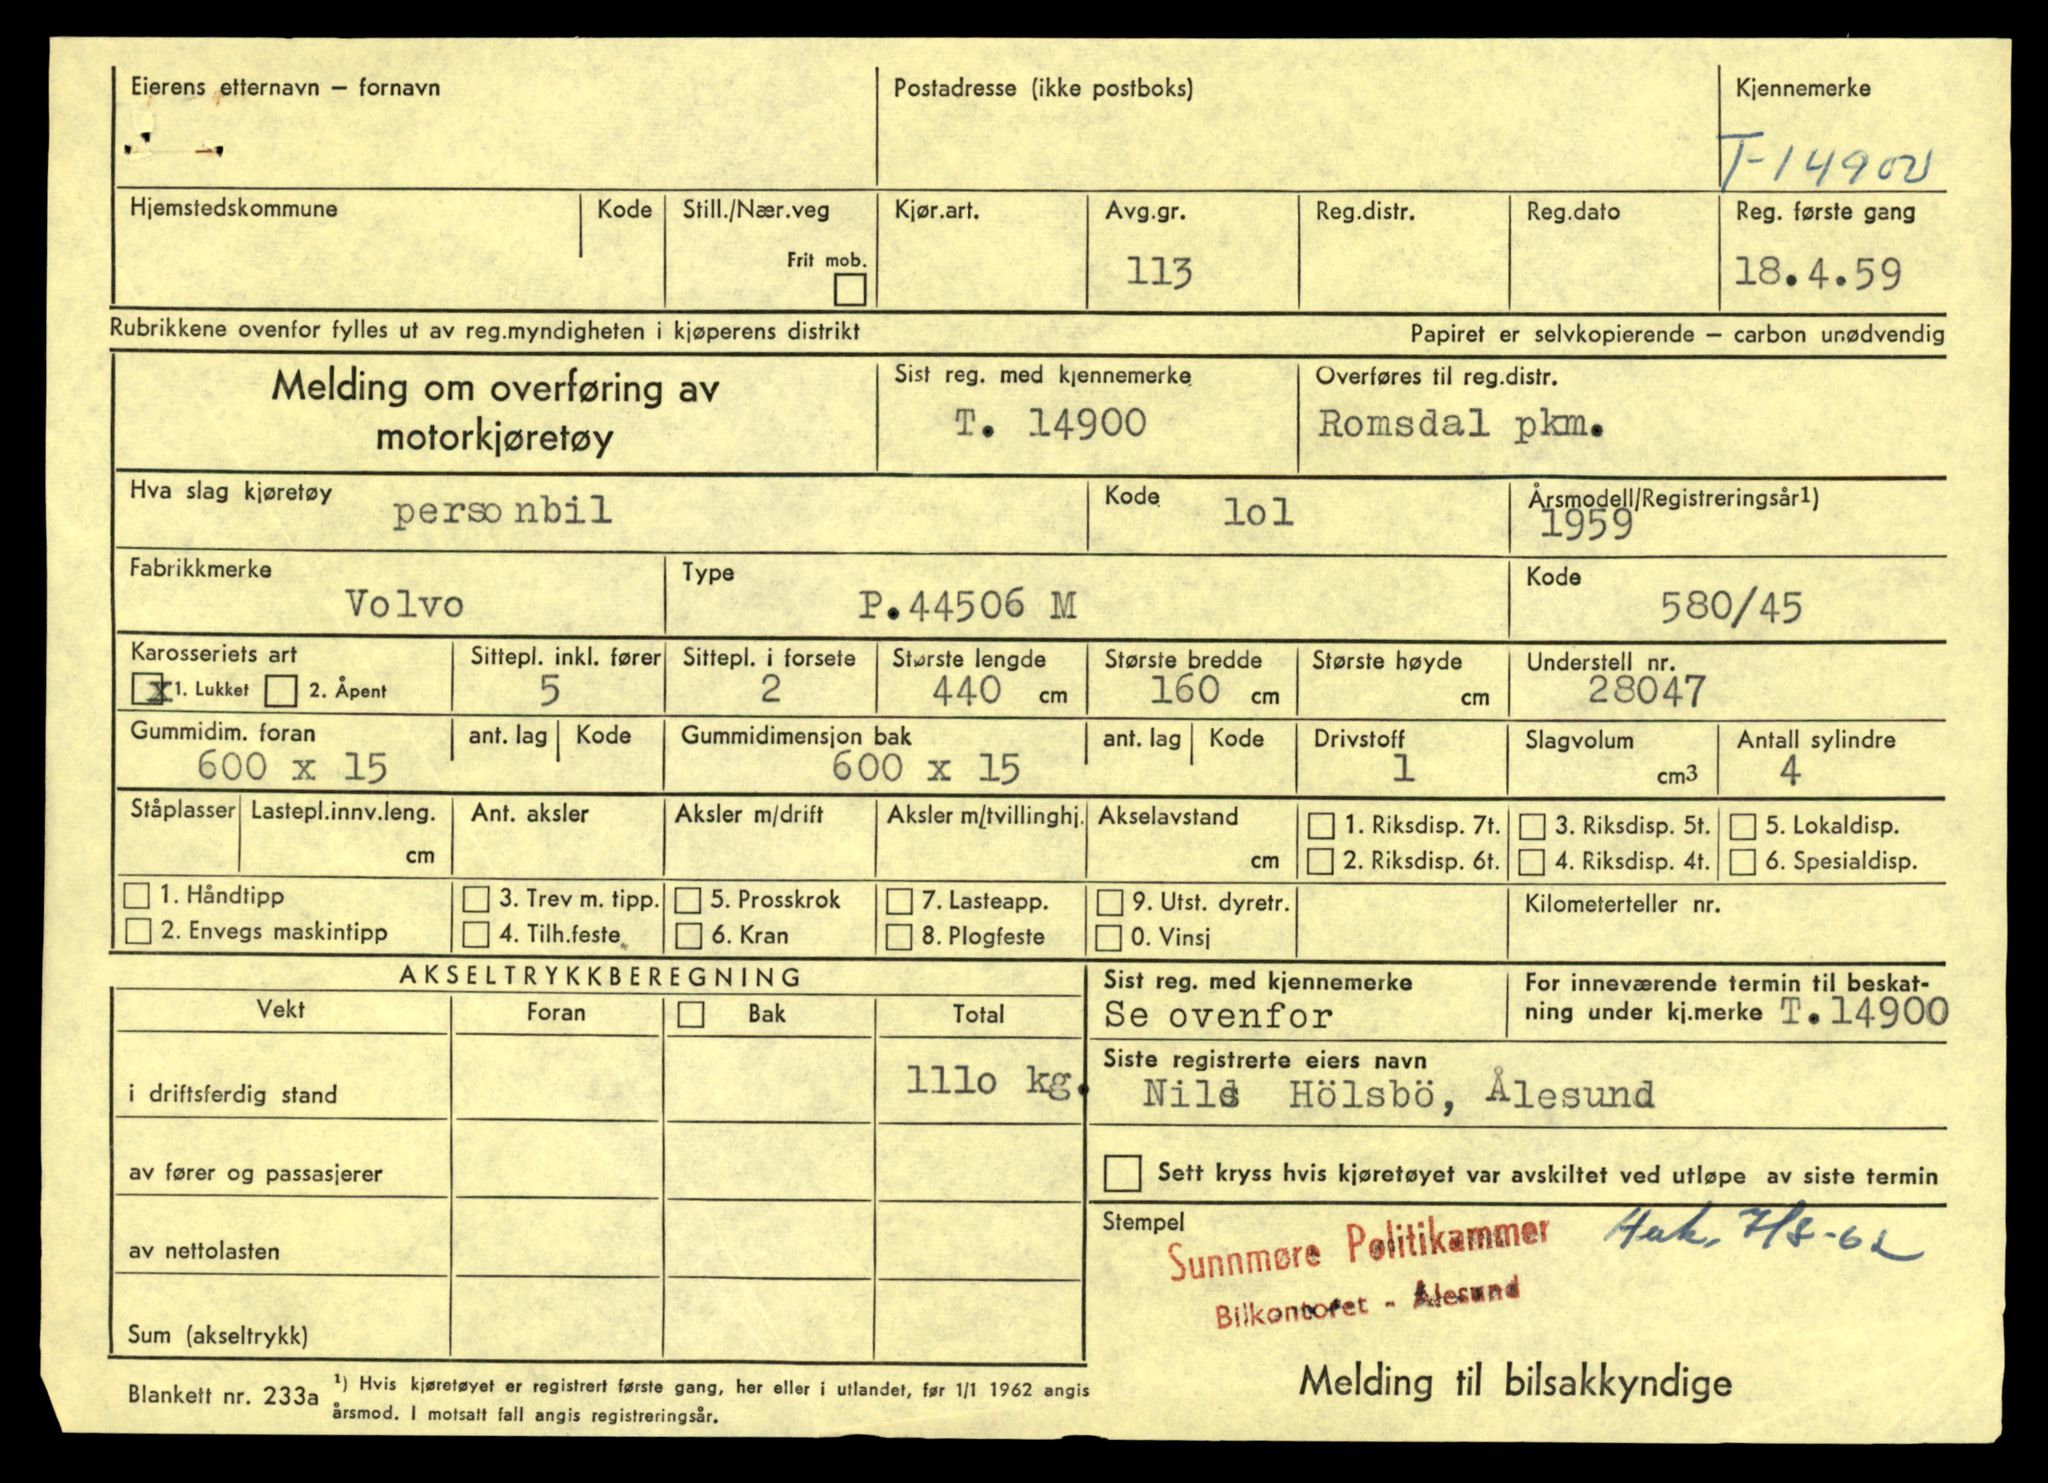 Eierens etternavn – fornavn
Postadresse (ikke postboks)
Kjennemerke
T-14900
Hjemstedskommune
Kode
Still./Nær.veg
Frit mob.
Kjør.art.
Avg.gr.
113
Reg.distr.
Reg.dato
Reg. første gang
18.4.59
Rubrikkene ovenfor fylles ut av reg.myndigheten i kjøperens distrikt
Papiret er selvkopierende – carbon unødvendig
Melding om overføring av
motorkjøretøy
Sist reg. med kjennemerke
T. 14900
Overføres til reg.distr.
Romsdal pkm.
Hva slag kjøretøy
personbil
Kode
lol
Årsmodell/Registreringsår1)
1959
Fabrikkmerke
Volvo
Type
P.44506 M
Kode
580/45
Karosseriets art
x 1. Lukket 2. Åpent
Sittepl. inkl. fører
5
Sittepl. i forsete
2
Største lengde
440 cm
Største bredde
160 cm
Største høyde
cm
Understell nr.
28047
Gummidim. foran
600 x 15
ant. lag
Kode
Gummidimensjon bak
600 x 15
ant. lag
Kode
Drivstoff
1
Slagvolum
cm3
Antall sylindre
4
Ståplasser
Lastepl.innv.leng.
cm
Ant. aksler
Aksler m/drift
Aksler m/tvillinghj.
Akselavstand
cm
1. Riksdisp. 7t.
2. Riksdisp. 6t.
3. Riksdisp. 5t.
4. Riksdisp. 4t.
5. Lokaldisp.
6. Spesialdisp.
1. Håndtipp
2. Envegs maskintipp
3. Trev m. tipp.
4. Tilh.feste
5. Prosskrok
6. Kran
7. Lasteapp.
8. Plogfeste
9. Utst. dyretr.
0. Vinsj
Kilometerteller nr.
AKSELTRYKKBEREGNING
Vekt
Foran
Bak
Total
i driftsferdig stand
lllo kg.
av fører og passasjerer
av nettolasten
Sum (akseltrykk)
Sist reg. med kjennemerke
Se ovenfor
For inneværende termin til beskat-
ning under kj.merke T.14900
Siste registrerte eiers navn
Nils Hölsbö, Ålesund
Sett kryss hvis kjøretøyet var avskiltet ved utløpe av siste termin
Stempel
Sunnmøre Politikammer
Bilkontoret - Ålesund
7/8-62
Melding til bilsakkyndige
Blankett nr. 233a
1) Hvis kjøretøyet er registrert første gang, her eller i utlandet, før 1/1 1962 angis
årsmod. I motsatt fall angis registreringsår.